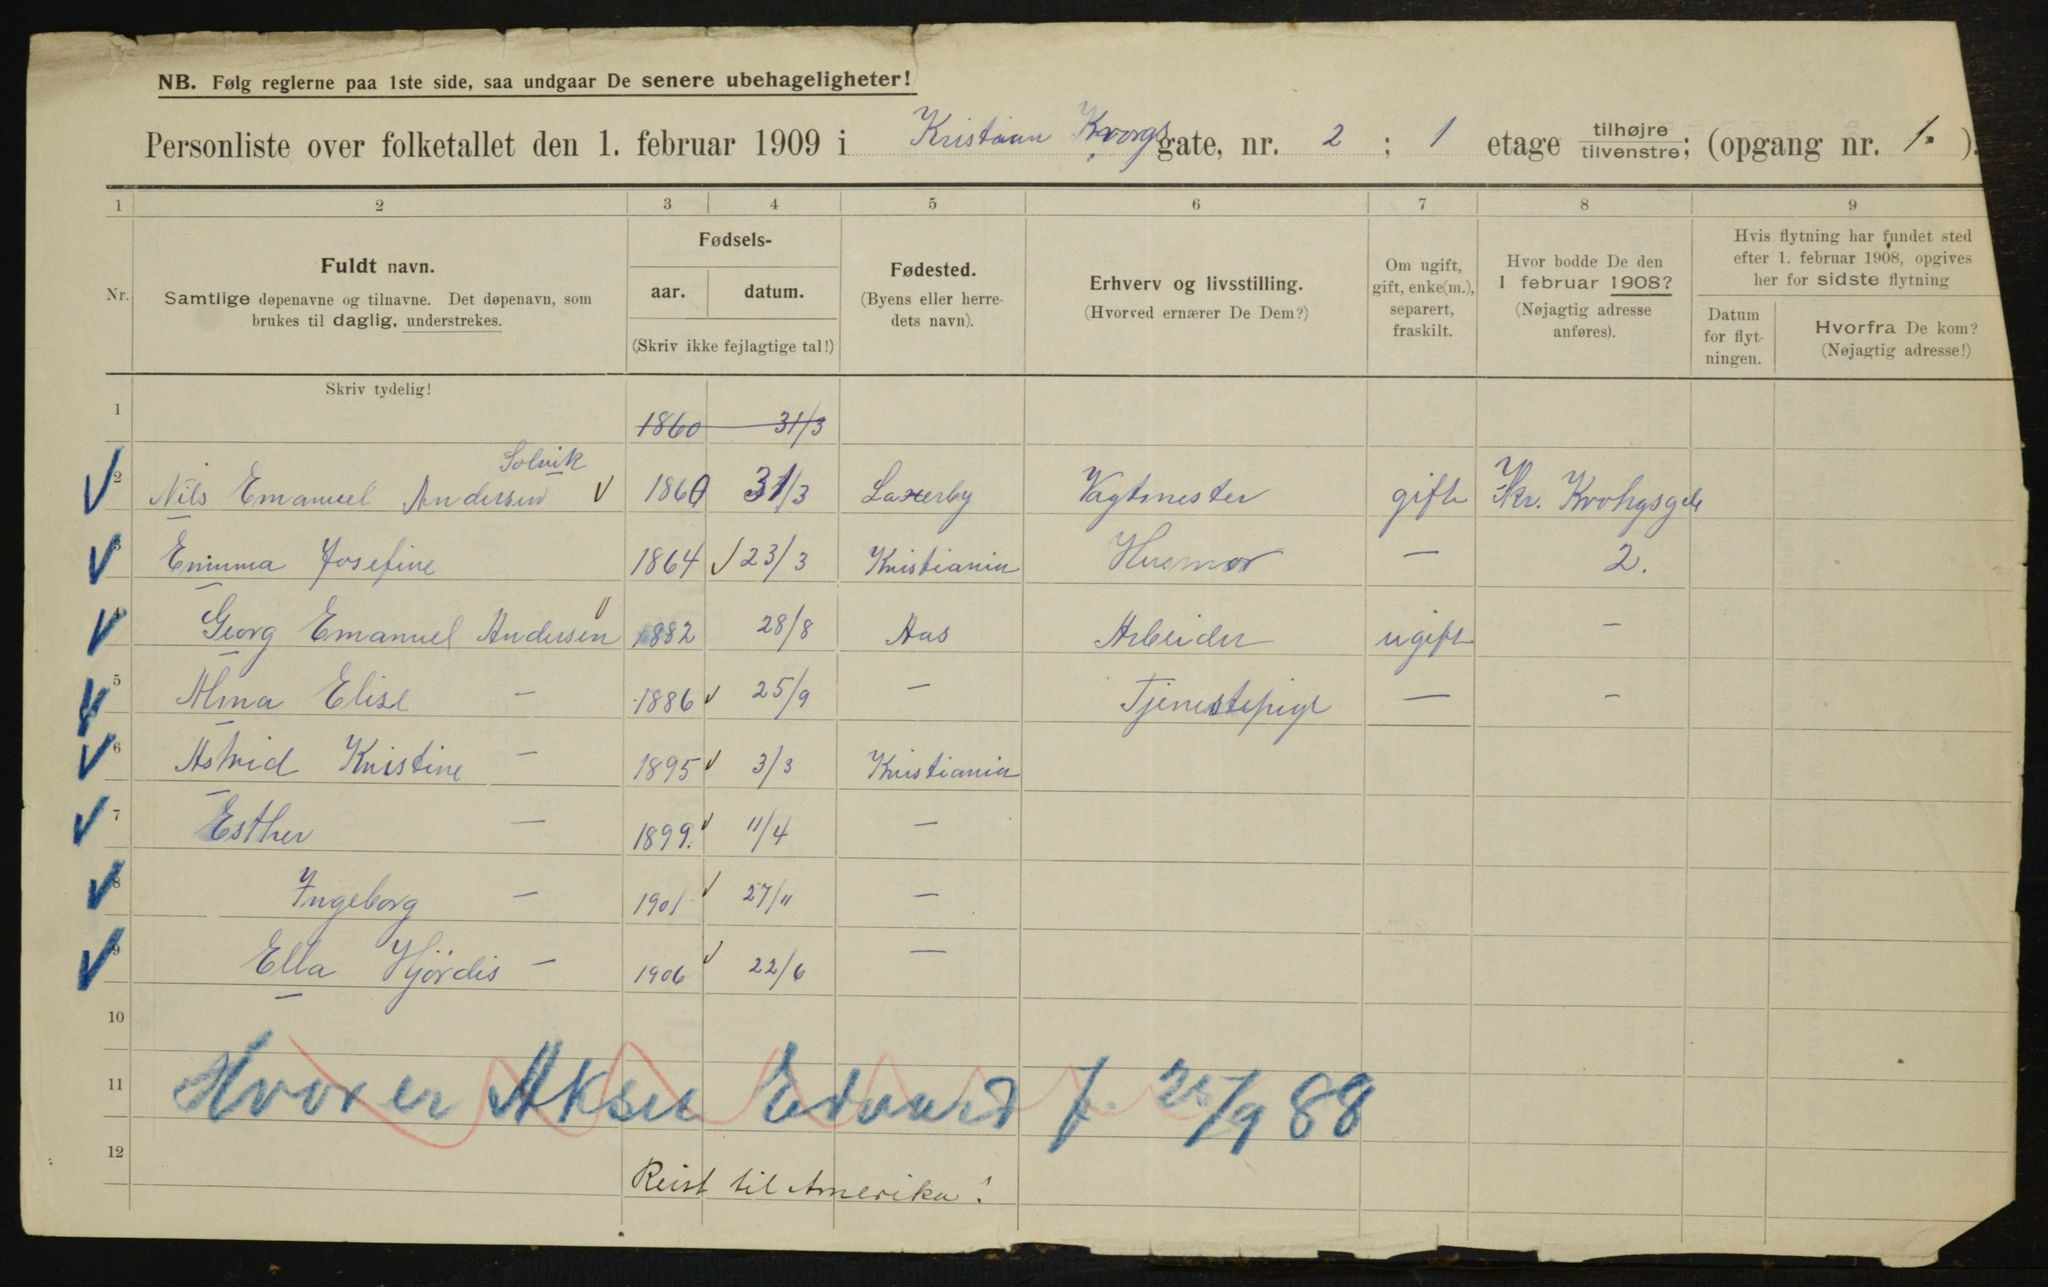 NB. Følg reglerne paa 1ste side, saa undgaar De senere ubehageligheter!
Personliste over folketallet den 1. februar 1909 i Kristian Krohgs gate, nr. 2 ; 1 etage tilhøjre tilvenstre; (opgang nr. 1. ).
1 2 3 4 5 6 7 8 9
Nr.
Fuldt navn.
Samtlige døpenavne og tilnavne. Det døpenavn, som
brukes til daglig, understrekes.
Fødsels-
aar. datum.
(Skriv ikke fejlagtige tal!)
Fødested.
(Byens eller herre-
dets navn).
Erhverv og livsstilling.
(Hvorved ernærer De Dem?)
Om ugift,
gift, enke(m.),
separert,
fraskilt.
Hvor bodde De den
1 februar 1908?
(Nøjagtig adresse
anføres).
Hvis flytning har fundet sted
efter 1. februar 1908, opgives
her for sidste flytning
Datum
for flyt-
ningen.
Hvorfra De kom?
(Nøjagtig adresse!)
Skriv tydelig!
1 1860 31/3
Solvik
2 Nils Emanuel Andersen 1860 31/3 Vagtmester gift Kr. Krohgsgde
3 Emma Josefine 1864 23/3 Kristiania Husmor — 2.
4 Georg Emanuel Andersen 1882 28/8 Aas Arbeider ugift —
5 Alma Elise — 1886 25/9 — Tjenestepige — —
6 Astrid Kristine — 1895 3/3 Kristiania
7 Esther — 1899. 11/4 —
8 Ingeborg — 1901 27/11 —
9 Ella Hjördis — 1906 22/6 —
10
11 Hvor er Aksel Edvard f. 25/9 88
12 Reist til Amerika!